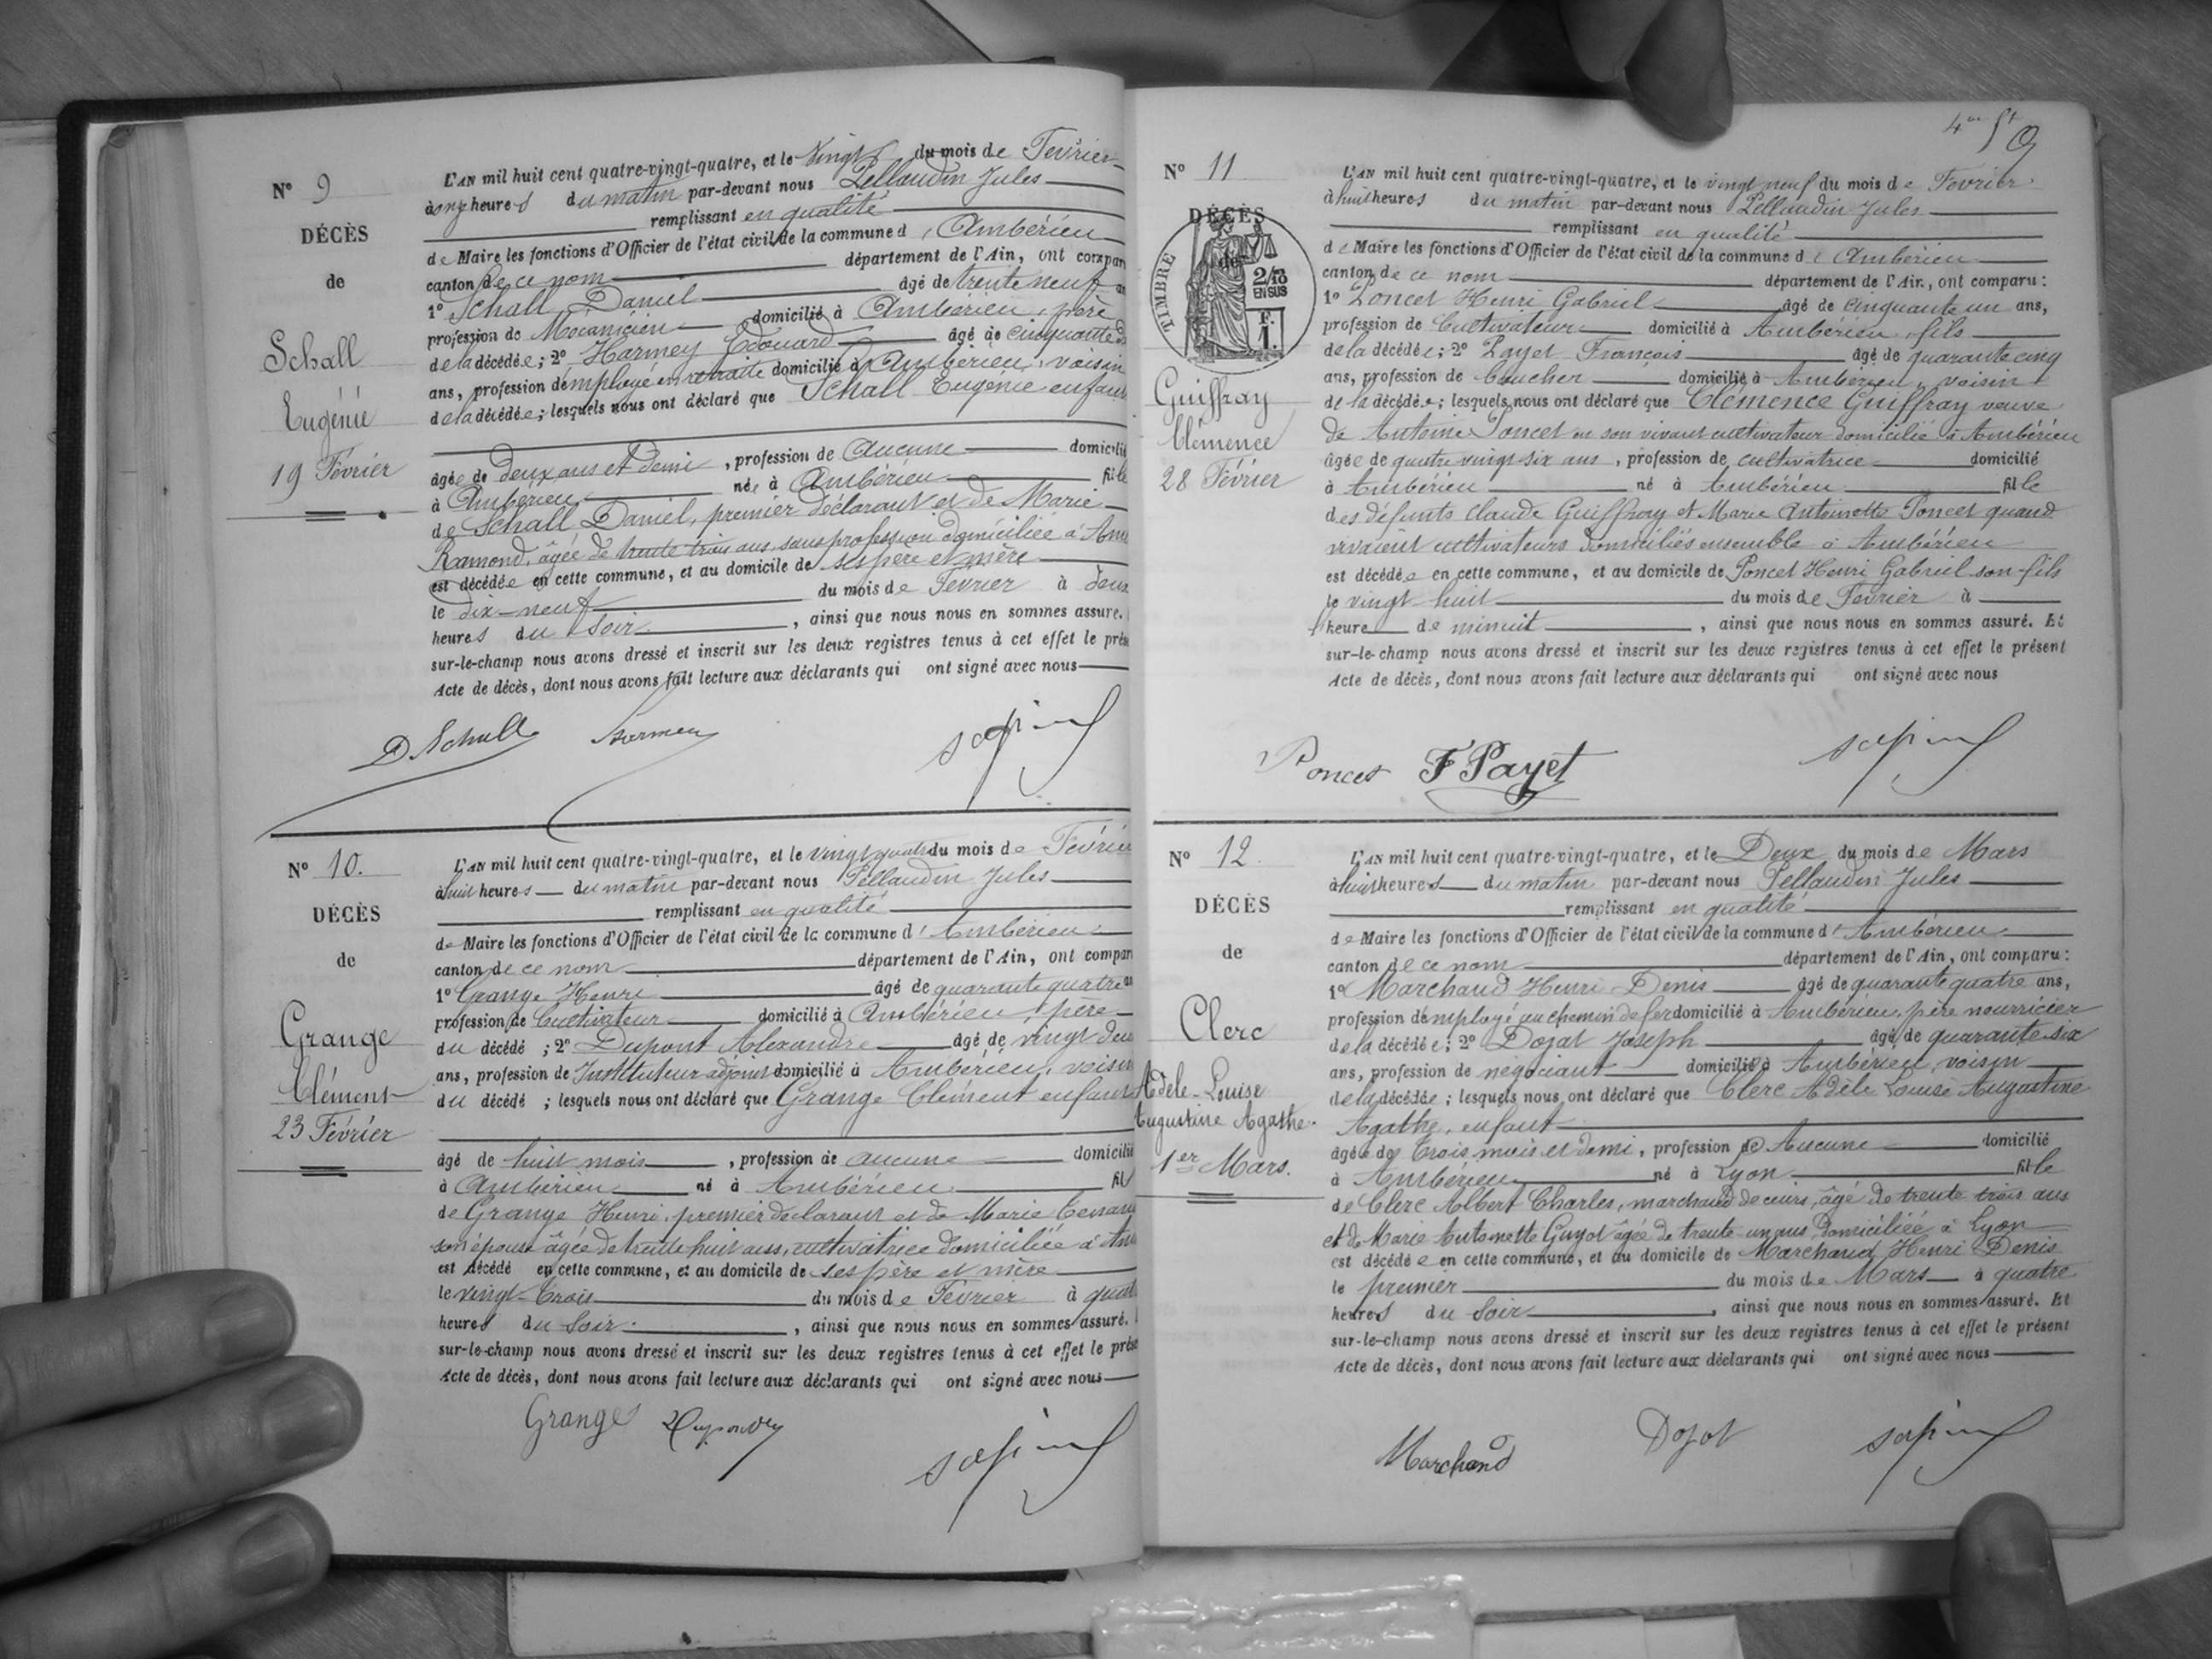 Nº 9
DÉCÈS
de
Schall
Eugénie
19 Février
L'AN mil huit cent quatre-vingt-quatre, et le Vingt du mois de Février
à onze heures du matin par-devant nous Pellaudin Jules
remplissant en qualité
de Maire les fonctions d'Officier de l'état civil de la commune d'Ambérieu
canton de ce nom département de l'Ain, ont compar
1º Schall Daniel âgé de trente neuf an
profession de Mécanicien domicilié à Ambérieu, père
de la décédée; 2º Harmey Édouard âgé de cinquante
ans, profession d'employé en retraite domicilié à Ambérieu, voisin
de la décédée; lesquels nous ont déclaré que Schall Eugénie enfant
âgée de deux ans et demi, profession de Aucune domicilié
à Ambérieu née à Ambérieu fille
de Schall Daniel, premier déclarant et de Marie
Ramond, âgée de trente trois ans, sans profession domiciliée à Am
est décédée en cette commune, et au domicile de ses père et mère
le dix-neuf du mois de Février à deux
heures du soir, ainsi que nous nous en sommes assuré.
sur-le-champ nous avons dressé et inscrit sur les deux registres tenus à cet effet le prés
Acte de décès, dont nous avons fait lecture aux déclarants qui ont signé avec nous
D. Schall
Nº 10.
DÉCÈS
de
Grange
Clément
23 Février
L'AN mil huit cent quatre-vingt-quatre, et le vingt quatre du mois de Février
à huit heures du matin par-devant nous Pellaudin Jules
remplissant en qualité
de Maire les fonctions d'Officier de l'état civil de la commune d'Ambérieu
canton de ce nom département de l'Ain, ont compar
1º Grange Henri âgé de quarante quatre an
profession de Cultivateur domicilié à Ambérieu, père
du décédé; 2º Dupont Alexandre âgé de vingt deux
ans, profession de Instituteur adjoint domicilié à Ambérieu, voisin
du décédé; lesquels nous ont déclaré que Grange Clément enfant
âgé de huit mois, profession de aucune domicilié
à Ambérieu né à Ambérieu fil
de Grange Henri, premier déclarant et de Marie
son épouse âgée de trente huit ans, cultivatrice domiciliée à Am
est décédé en cette commune, et au domicile de ses père et mère
le vingt-trois du mois de Février à quat
heures du soir, ainsi que nous nous en sommes assuré.
sur-le-champ nous avons dressé et inscrit sur les deux registres tenus à cet effet le prése
Acte de décès, dont nous avons fait lecture aux déclarants qui ont signé avec nous
Grange
Nº 11
DÉCÈS
de
TIMBRE
2/10
EN SUS
F.
1.
Guiffray
Clémence
28 Février
L'AN mil huit cent quatre-vingt-quatre, et le vingt neuf du mois de Février
à huit heures du matin par-devant nous Pellaudin Jules
remplissant en qualité
de Maire les fonctions d'Officier de l'état civil de la commune d'Ambérieu
canton de ce nom département de l'Ain, ont comparu:
1º Poncet Henri Gabriel âgé de cinquante un ans,
profession de Cultivateur domicilié à Ambérieu, fils
de la décédée; 2º Payet François âgé de quarante cinq
ans, profession de boucher domicilié à Ambérieu, voisin
de la décédée; lesquels nous ont déclaré que Clémence Guiffray veuve
de Antoine Poncet en son vivant cultivateur domicilié à Ambérieu
âgée de quatre vingt six ans, profession de cultivatrice domicilié
à Ambérieu né à Ambérieu fille
des défunts Claude Guiffray et Marie Antoinette Poncet quand
vivaient cultivateurs domiciliés ensemble à Ambérieu
est décédée en cette commune, et au domicile de Poncet Henri Gabriel son fils
le vingt-huit du mois de Février à
heure de minuit, ainsi que nous nous en sommes assuré. Et
sur-le-champ nous avons dressé et inscrit sur les deux registres tenus à cet effet le présent
Acte de décès, dont nous avons fait lecture aux déclarants qui ont signé avec nous
Poncet F Payet
Nº 12
DÉCÈS
de
Clerc
Adèle-Louise
Augustine Agathe.
1er Mars.
L'AN mil huit cent quatre-vingt-quatre, et le Deux du mois de Mars
à huit heures du matin par-devant nous Pellaudin Jules
remplissant en qualité
de Maire les fonctions d'Officier de l'état civil de la commune d'Ambérieu
canton de ce nom département de l'Ain, ont comparu:
1º Marchand Henri Denis âgé de quarante quatre ans,
profession d'employé au chemin de fer domicilié à Ambérieu, père nourricier
de la décédée; 2º Dojat Joseph âgé de quarante-six
ans, profession de négociant domicilié à Ambérieu, voisin
de la décédée; lesquels nous ont déclaré que Clerc Adèle Louise Augustine
Agathe, enfant
âgée de Trois mois et demi, profession de Aucune domicilié
à Ambérieu né à Lyon fille
de Clerc Albert Charles, marchand de cuirs, âgé de trente trois ans
et de Marie Antoinette Guyot âgée de trente un ans, domiciliée à Lyon
est décédée en cette commune, et au domicile de Marchand Henri Denis
le premier du mois de Mars à quatre
heures du soir, ainsi que nous nous en sommes assuré. Et
sur-le-champ nous avons dressé et inscrit sur les deux registres tenus à cet effet le présent
Acte de décès, dont nous avons fait lecture aux déclarants qui ont signé avec nous
Marchand Dojat